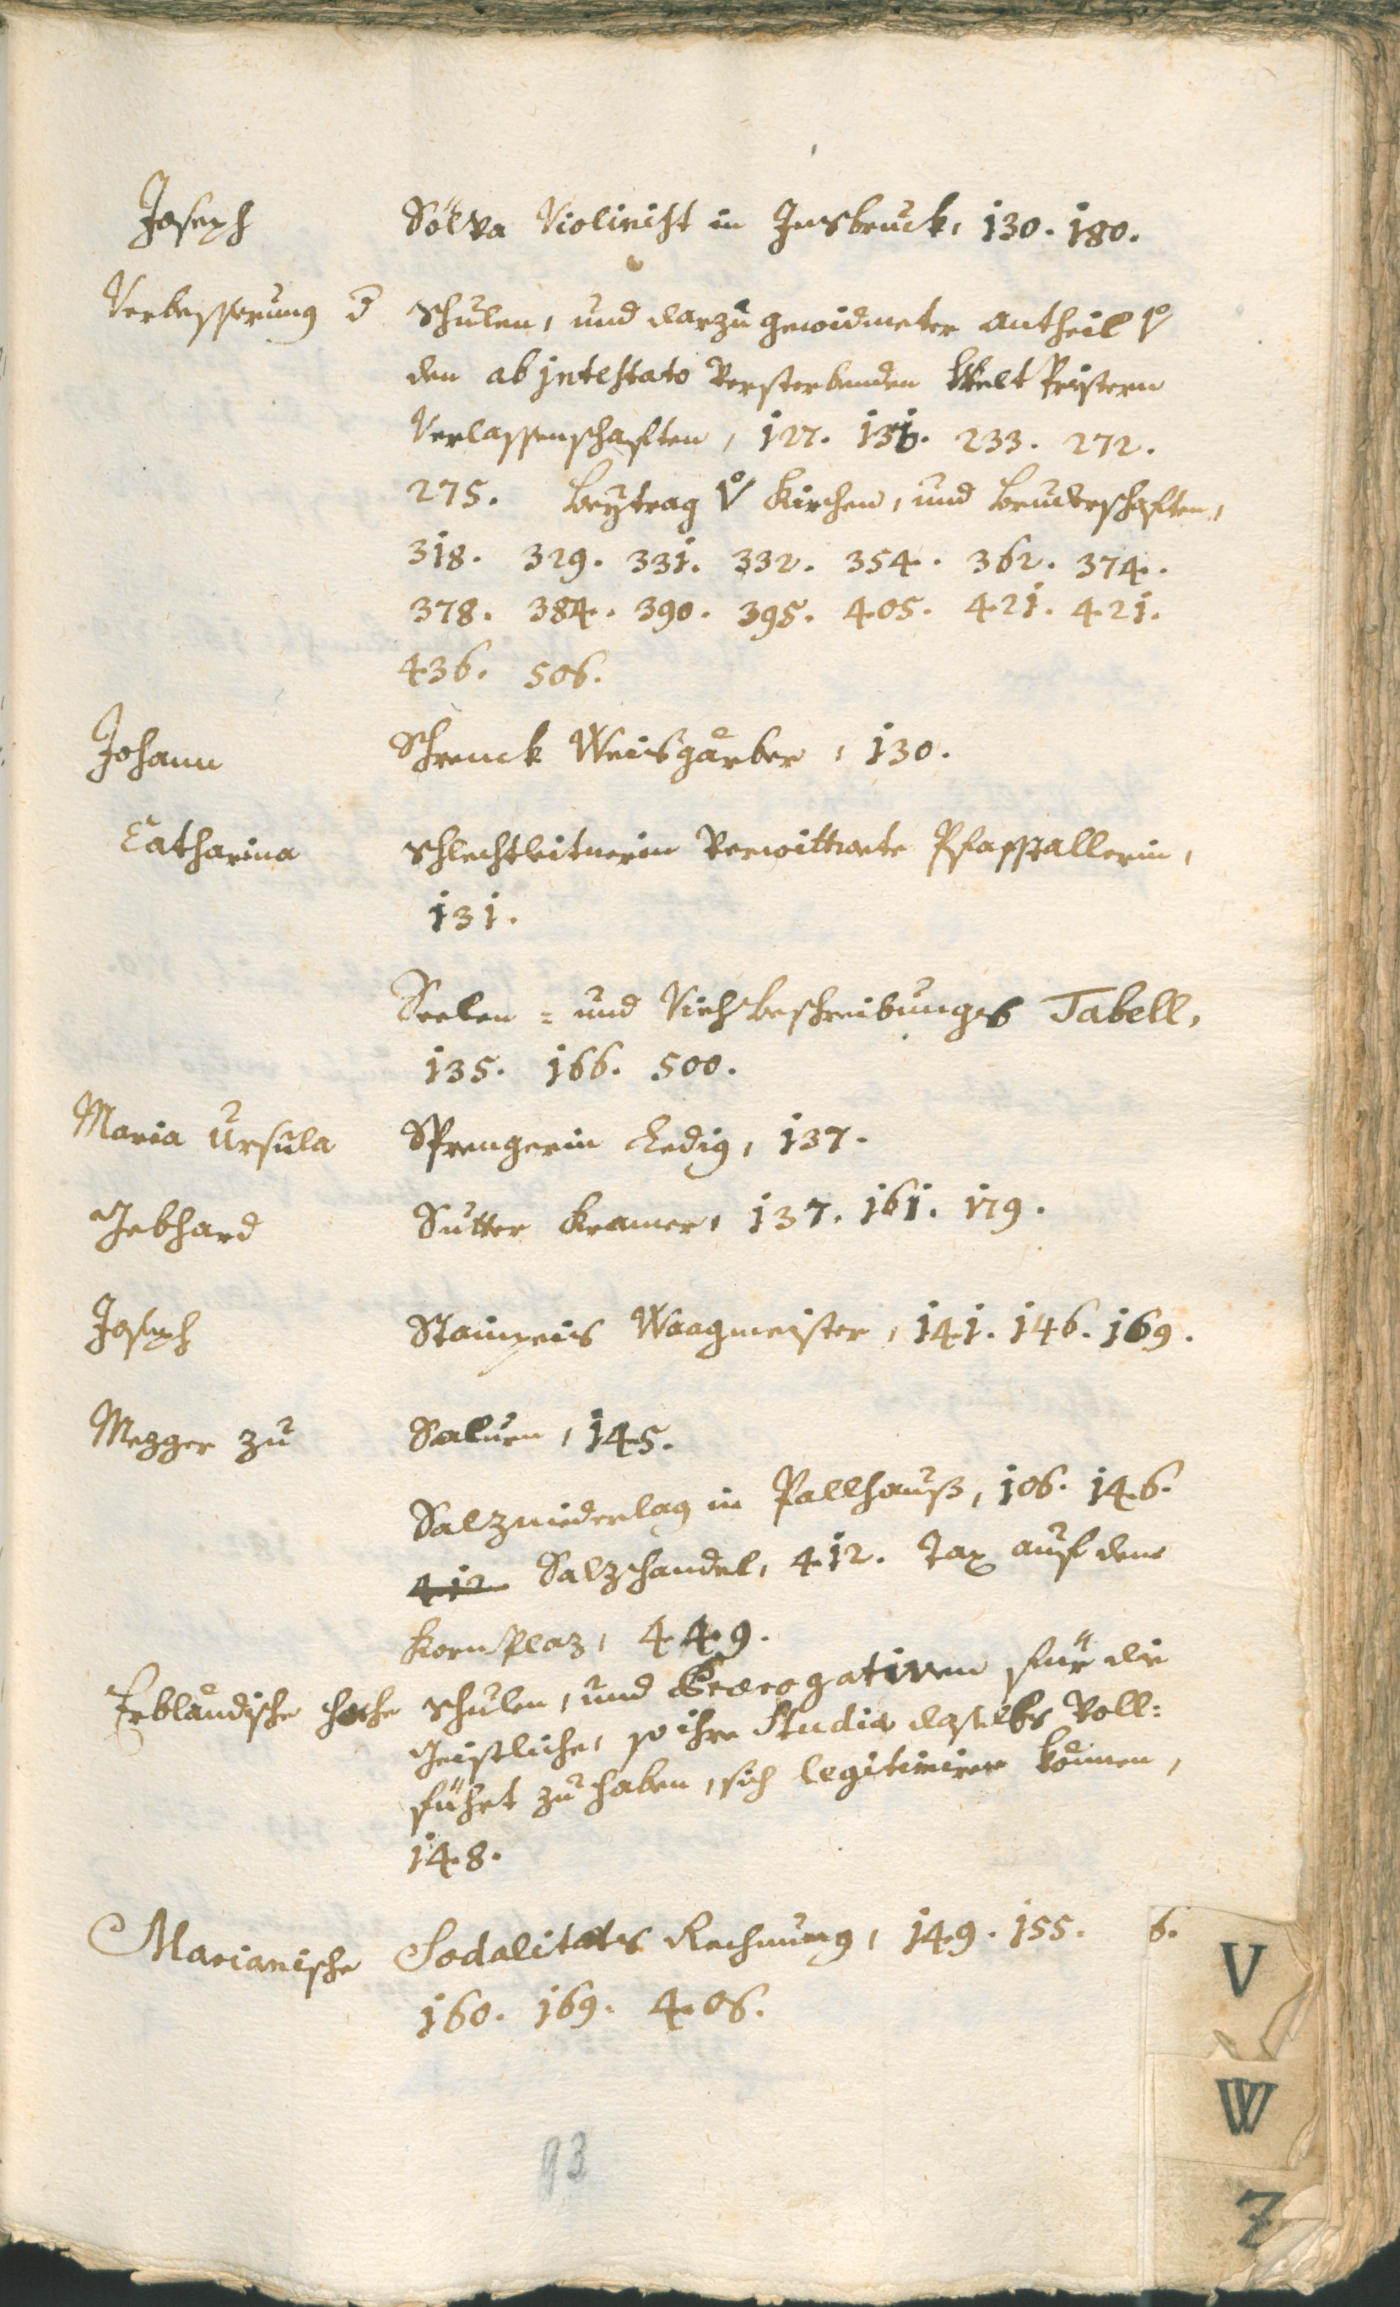 Joseph Sölva Violinist in Insbruck, 130. 180.
Verbesserung d Schulen, und darzu gewidmeter Antheil vo
den ab intestato Versterbenden Welt Pristern
Verlassenschaften, 127. 136. 233. 272.
275. Beytrag vo Kirchen, und Bruderschaften,
318. 329. 331. 332. 354. 362. 374.
378. 384. 390. 395. 405. 421. 421.
436. 506.
Johann Schrenck Weisgärber, 130.
Catharina Schlechtleitnerin Verwittwete Pfaffstallerin,
131.
Seelen = und Vieh Beschreibungs Tabell,
135. 166. 500.
Maria Ursula Sprengerin Ledig, 137.
Gebhard Sutter Kramer, 137. 161. 179.
Joseph Staimpeis Waagmeister, 141. 146. 169.
Mezger zu Salurn, 145.
Salzniederlag in Pallhauß, 106. 146.
412 Salzhandel, 412. Tax auf dem
Korn Plaz, 449.
Erbländische hoche Schulen, und Prærogativen für die
Geistliche, so ihre Studia daselbs Voll=
führt zu haben, sich legitimiren können,
148.
Marianische Sodalitæts Rechnung, 149. 155.
160. 169. 406.
6.
V
W
Z
93